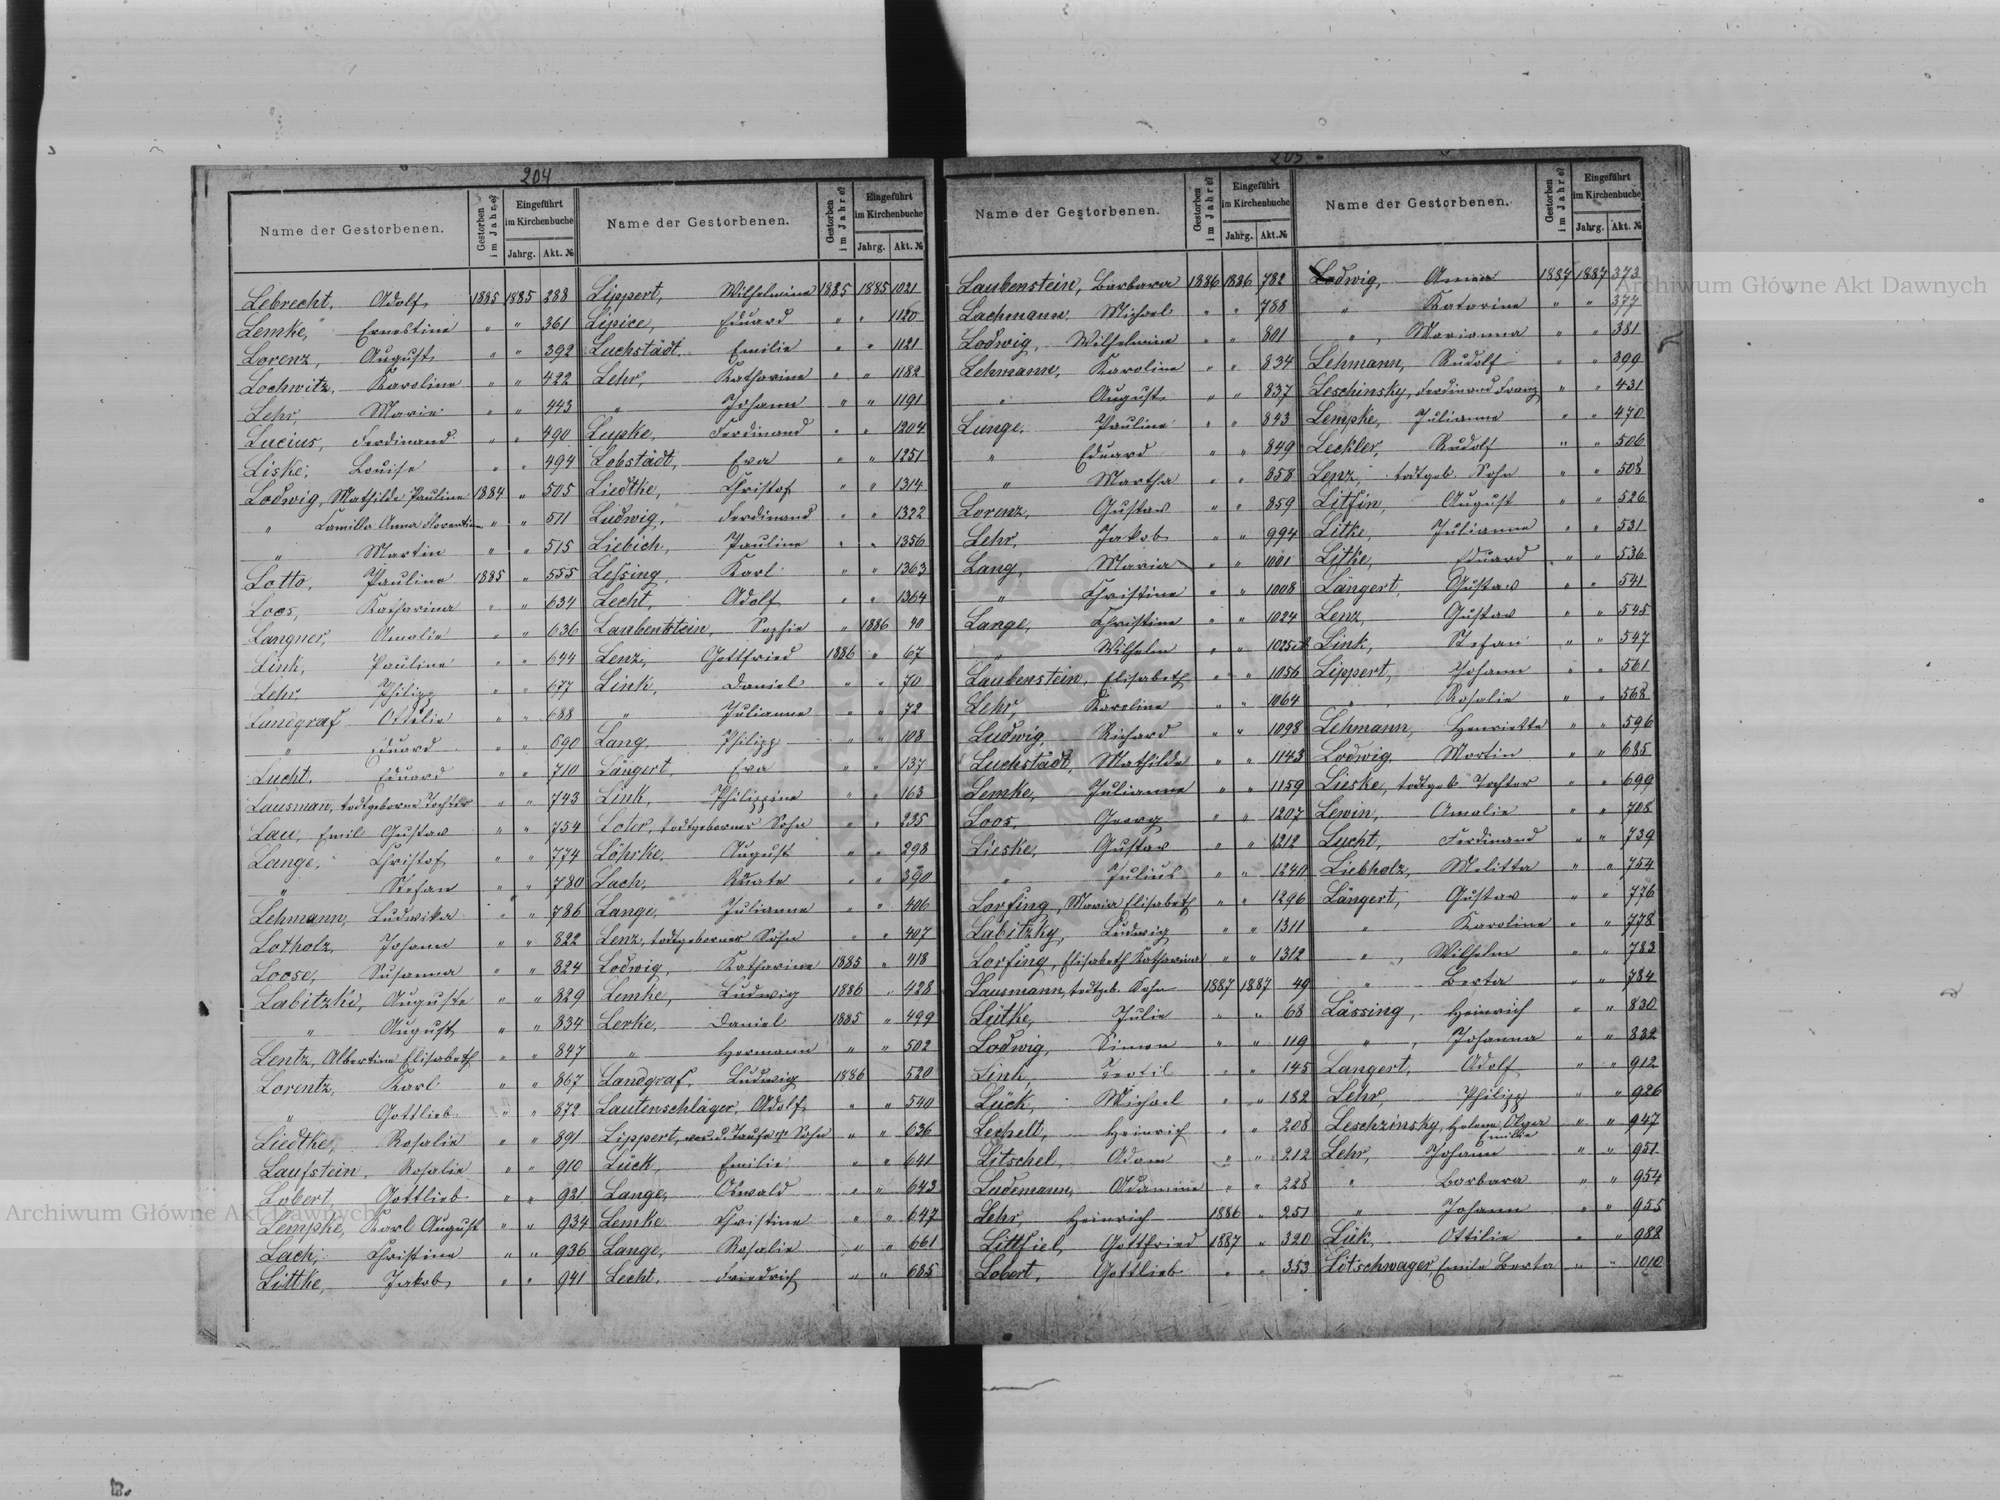 204
Name der Gestorbenen. Gestorben im Jahre Eingeführt im Kirchenbuche Jahrg. Akt. №
Lebrecht, Adolf 1885 1885 288
Lemke, Ernestine " " 361
Lorenz, August " " 392
Lochwitz, Karoline " " 422
Lehr, Marie " " 443
Lucius, Ferdinand " " 490
Liske, Louise " " 494
Lodwig, Mathilde Pauline 1884 " 505
" Camilla Anna Florentine " " 511
" Martin " " 515
Lotto, Pauline 1885 " 555
Loos, Katharina " " 634
Langner, Amalie " " 636
Link, Pauline " " 644
Lehr Philipp " " 677
Landgraf Ottilie " " 688
" Eduard " " 690
Lucht, Eduard " " 710
Lausman, todtgeborne Tochter " " 743
Lau, Emil Gustav " " 754
Lange, Christof " " 774
" Stefan " " 780
Lehmann, Ludwika " " 786
Lotholz, Johann " " 822
Loose, Susanna " " 824
Labitzki, Auguste " " 829
" August " " 834
Lentz, Albertine Elisabeth " " 847
Lorentz, Karl " " 867
" Gottlieb " " 872
Liedtke, Rosalie " " 891
Laufstein, Rosalie " " 910
Lobert, Gottlieb " " 921
Lempke, Karl August " " 934
Lach, Christine " " 936
Littke, Jakob " " 941
Name der Gestorbenen. Gestorben im Jahre Eingeführt im Kirchenbuche Jahrg. Akt. №
Lippert, Wilhelmine 1885 1885 1021
Lipice, Eduard " " 1120
Luchstädt, Emilie " " 1121
Lehr, Katharine " " 1182
" Johann " " 1191
Lupke, Ferdinand " " 1204
Lobstädt, Eva " " 1251
Liedtke, Christof " " 1314
Ludwig, Ferdinand " " 1322
Liebich, Pauline " " 1356
Leßing, Karl " " 1363
Lecht, Adolf " " 1364
Laubenstein, Sophie " 1886 40
Lenz, Gottfried 1886 " 67
Link, Daniel " " 70
" Julianne " " 72
Lang, Philipp " " 108
Längert, Eva " " 137
Link, Philippine " " 163
Loter, todtgeborner Sohn " " 235
Löhrke, August " " 298
Lach, " " 390
Lange, Julianne " " 406
Lenz, todtgeborner Sohn " " 407
Lodwig, Katharine 1885 " 418
Lemke, Ludwig 1886 " 428
Lerke, Daniel 1885 " 499
" Hermann " " 502
Landgraf, Ludwig 1886 520
Lautenschläger, Adolf " " 540
Lippert, Taufe Sohn " " 636
Lück, Emilie " " 641
Lange, Oswald " " 643
Lemke Christine " " 647
Lange, Rosalie " " 661
Lecht, Friedrich " " 685
205
Name der Gestorbenen. Gestorben im Jahre Eingeführt im Kirchenbuche Jahrg. Akt. №
Laubenstein, Barbara 1886 1886 782
Lachmann, Michael " " 788
Lodwig, Wilhelmine " " 801
Lehmann, Karoline " " 834
" August " " 837
Lunge, Pauline " " 843
" Eduard " " 849
" Martha " " 858
Lorenz, Gustav " " 859
Lehr, Jakob " " 994
Lang, Maria " " 1001
" Christine " " 1008
Lange, Christine " " 1024
" Wilhelm " " 1025
Laubenstein, Elisabeth " " 1056
Lehr, Karoline " " 1064
Ludwig, Richard " " 1098
Luchstädt, Mathilde " " 1143
Lemke, Julianne " " 1159
Loos, Georg " " 1207
Lieske, Gustav " " 1212
" Julius " " 1240
Lorfing, Maria Elisabeth " " 1296
Labitzky, Ludwig " " 1311
Lorfing, Elisabeth Katharina " " 1312
Lausmann, todtgeb. Sohn 1887 1887 49
Lütke, Julie " " 68
Lodwig, Simon " " 119
Link, Teofil " " 145
Lück, Michael " " 182
Lechelt, Heinrich " " 208
Litschel, Adam " " 212
Ludemann, Adamine " " 228
Lehr, Heinrich 1886 " 251
Littfiel, Gottfried 1887 " 320
Lobert, Gottlieb " " 353
Name der Gestorbenen. Gestorben im Jahre Eingeführt im Kirchenbuche Jahrg. Akt. №
Lodwig, Anna 1887 1887 373
" Katarine " " 377
" , Marianna " " 381
Lehmann, Rudolf " " 399
Leschinsky, Ferdinand Franz " " 431
Lempke, Julianne " " 470
Leckler, Rudolf " " 506
Lenz, todtgeb. Sohn " " 508
Litfin, August " " 526
Litke, Julianne " " 531
Litke, Eduard " " 536
Längert, Gustav " " 541
Lenz, Gustav " " 545
Link, Stefan " " 547
Lippert, Johann " " 561
" , Rosalie " " 568
Lehmann, Henriette " " 596
Lodwig, Martin " " 685
Lieske, todtgeb Tochter " " 699
Lewin, Amalie " " 708
Lucht, Ferdinand " " 739
Liebholz, Melitta " " 754
Längert, Gustav " " 776
" Karoline " " 778
" , Wilhelm " " 783
" Berta " " 784
Lässing, Heinrich " " 830
" , Johanna " " 832
Langert, Adolf " " 912
Lehr, Philipp " " 926
Leschzinsky, Helene Olga Emilie " " 947
Lehr, Johann " " 951
" Barbara " " 954
" Johann " " 955
Lük, Ottilie " " 988
Lötschwager, Emile Berta " " 1010
Archiwum Główne Akt Dawnych
Archiwum Główne Akt Dawnych